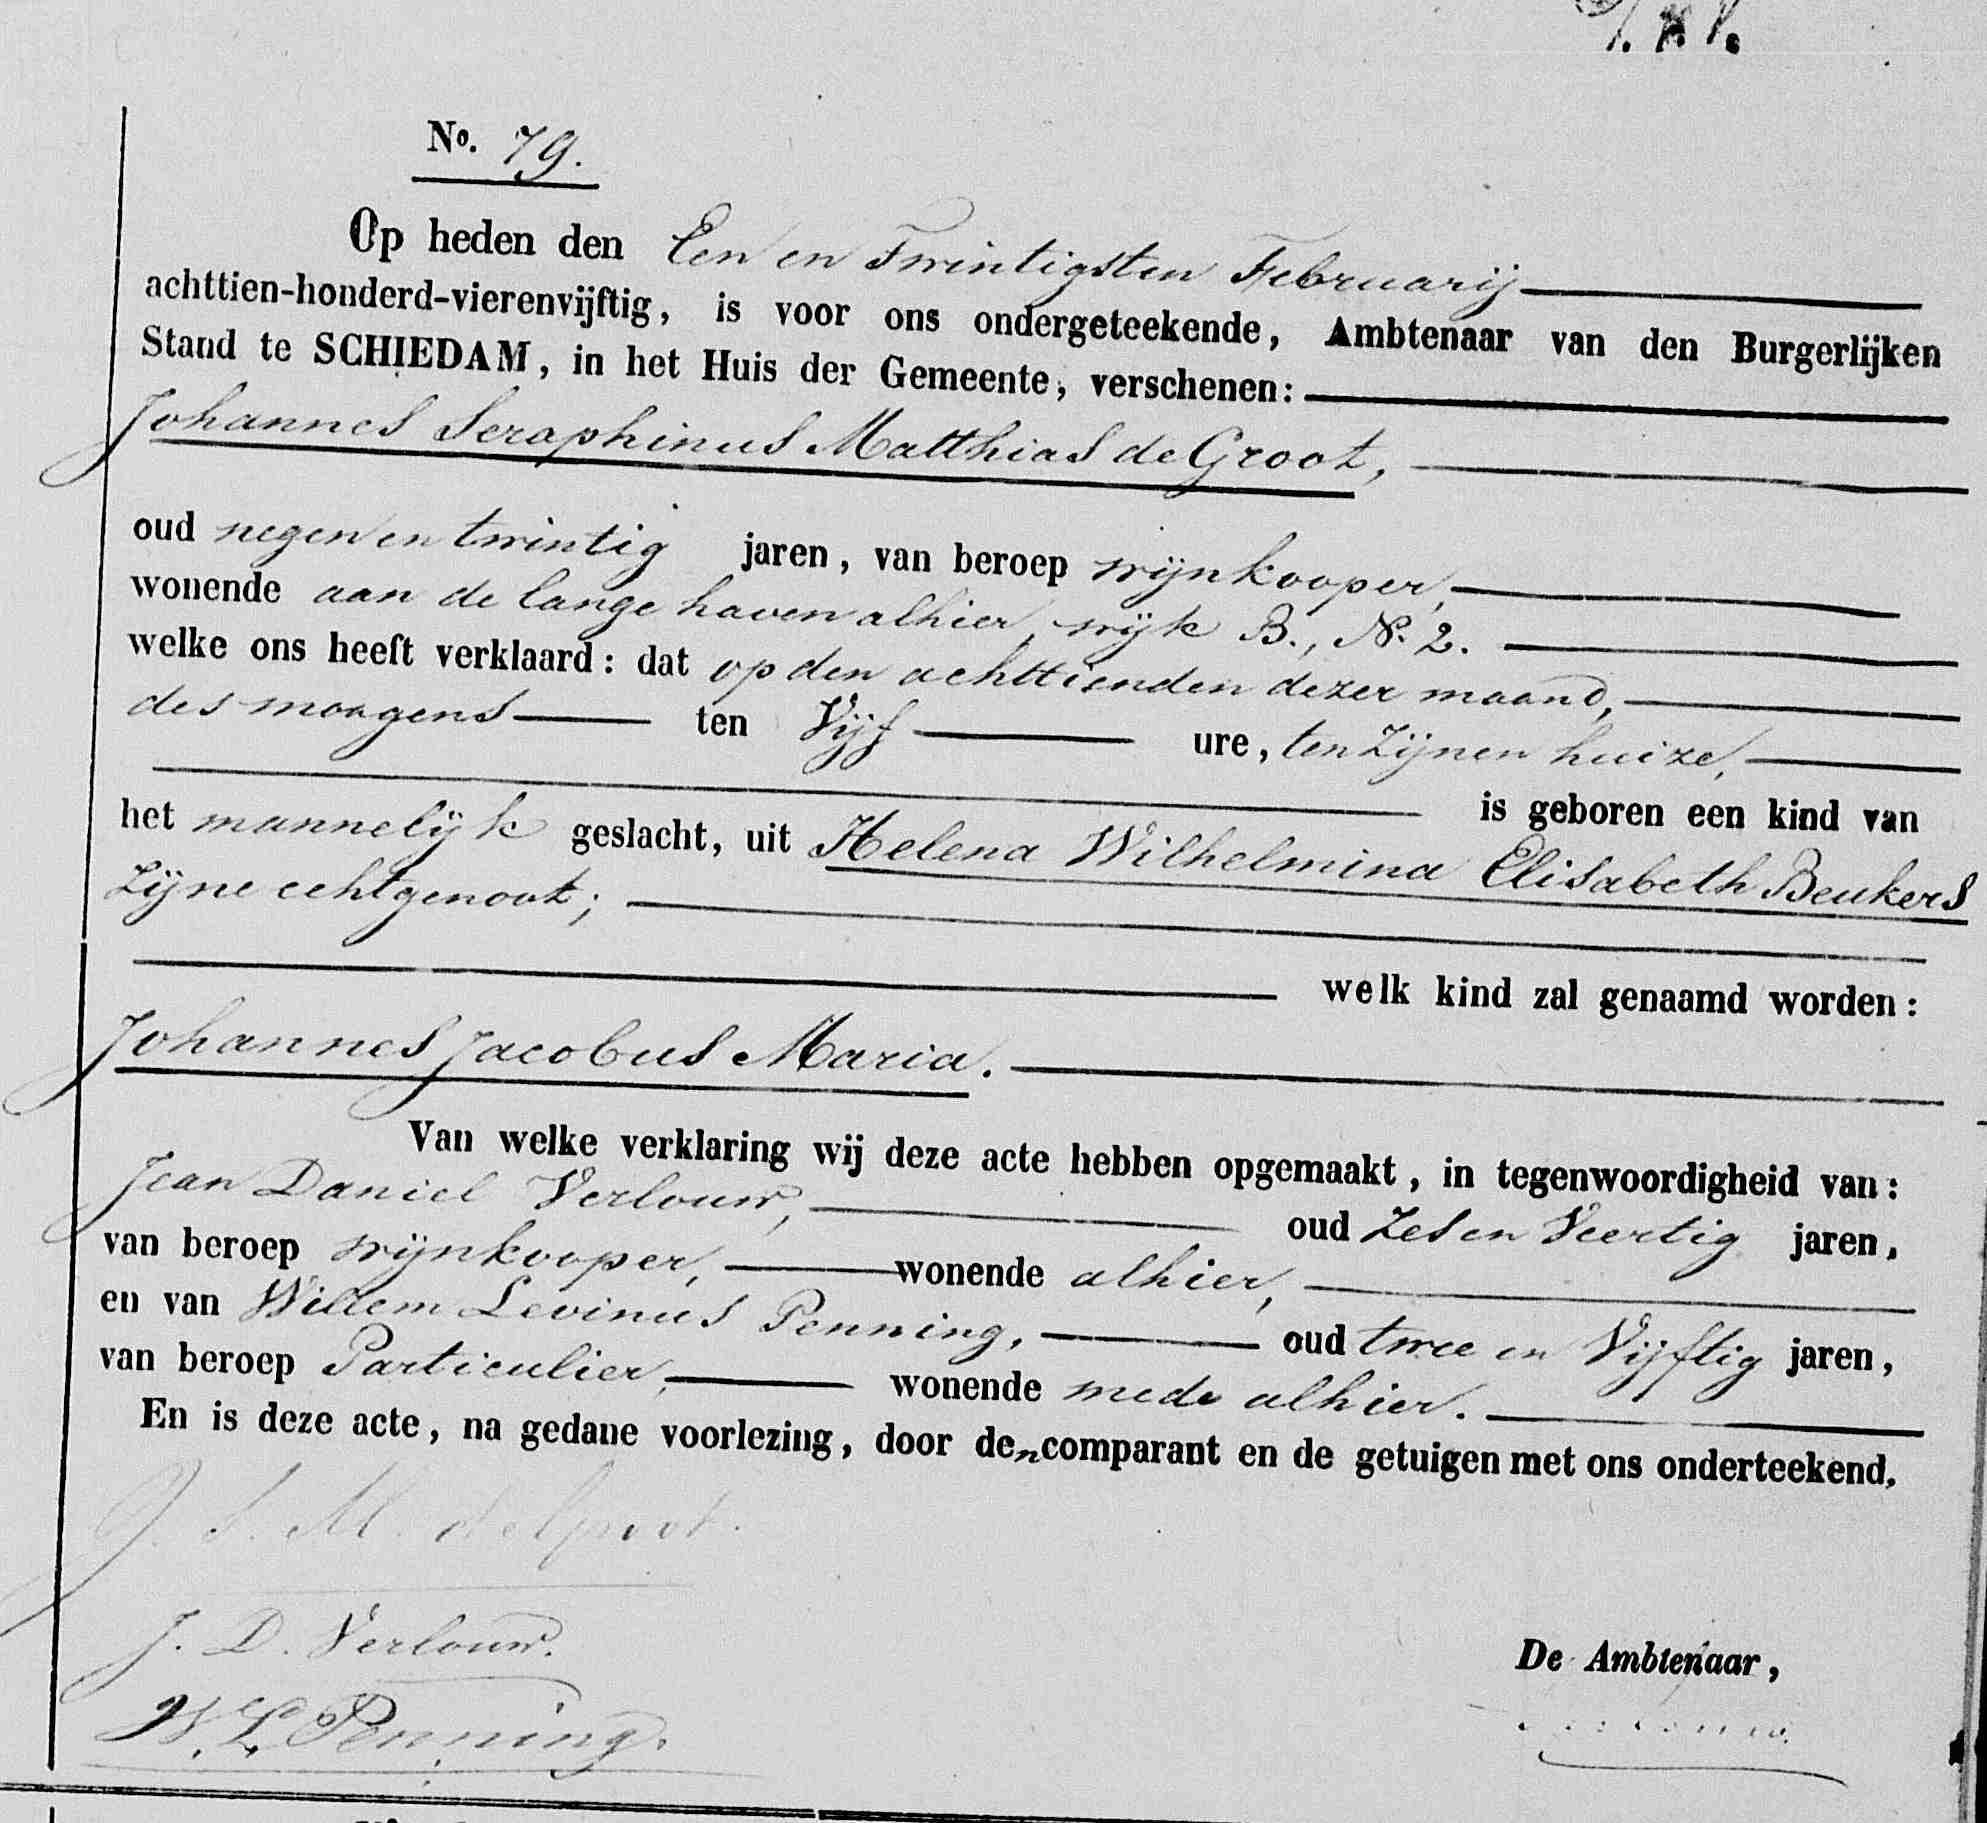 No. 79.
Op heden den Een en Twintigsten Februarij
achttien-honderd-vierenvijftig, is voor ons ondergeteekende, Ambtenaar van den Burgerlijken
Stand te SCHIEDAM, in het Huis der Gemeente, verschenen:
Johannes Seraphinus Matthias de Groot,
oud negen en twintig jaren, van beroep wijnkooper,
wonende aan de lange haven alhier, wijk B., No. 2.
welke ons heeft verklaard: dat op den achttienden dezer maand,
des morgens ten Vijf ure, ten Zijnen huize,
is geboren een kind van
het mannelijk geslacht, uit Helena Wilhelmina Elisabeth Beukers
Zijne echtgenoot;
welk kind zal genaamd worden:
Johannes Jacobus Maria.
Van welke verklaring wij deze acte hebben opgemaakt, in tegenwoordigheid van:
Jean Daniel Verlouw, oud Zes en Veertig jaren,
van beroep wijnkooper, wonende alhier,
en van Willem Levinus Penning, oud twee en Vijftig jaren,
van beroep Particulier, wonende mede alhier.
En is deze acte, na gedane voorlezing, door den comparant en de getuigen met ons onderteekend.
J. S. M. de Groot.
J. D. Verlouw.
W. L. Penning.
De Ambtenaar,